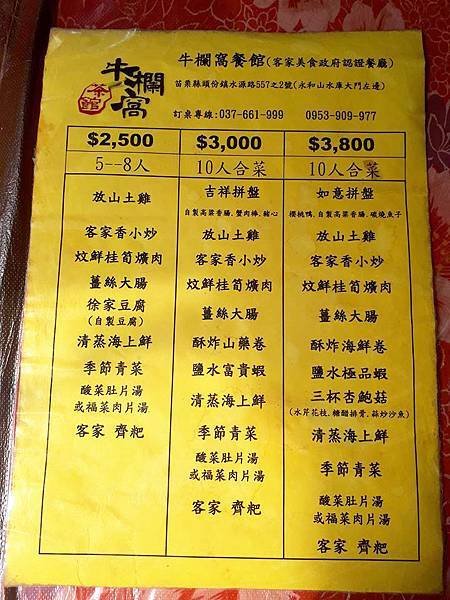 牛欄窩
茶館
牛欄窩餐館(客家美食政府認證餐廳)
苗栗縣頭份鎮水源路557之2號(永和山水庫大門左邊)
訂桌專線:037-661-999 0953-909-977
$2,500
5--8人
放山土雞
客家香小炒
炆鮮桂筍爌肉
薑絲大腸
徐家豆腐
(自製豆腐)
清蒸海上鮮
季節青菜
酸菜肚片湯
或福菜肉片湯
客家 齊粑
$3,000
10人合菜
吉祥拼盤
自製高粱香腸.蟹肉棒.豬心
放山土雞
客家香小炒
炆鮮桂筍爌肉
薑絲大腸
酥炸山藥卷
鹽水富貴蝦
清蒸海上鮮
季節青菜
酸菜肚片湯
或福菜肉片湯
客家 齊粑
$3,800
10人合菜
如意拼盤
櫻桃鴨.自製高粱香腸.碳燒魚子
放山土雞
客家香小炒
炆鮮桂筍爌肉
薑絲大腸
酥炸海鮮卷
鹽水極品蝦
三杯杏鮑菇
(水芹花枝.糖醋排骨.蒜炒沙魚)
清蒸海上鮮
季節青菜
酸菜肚片湯
或福菜肉片湯
客家 齊粑